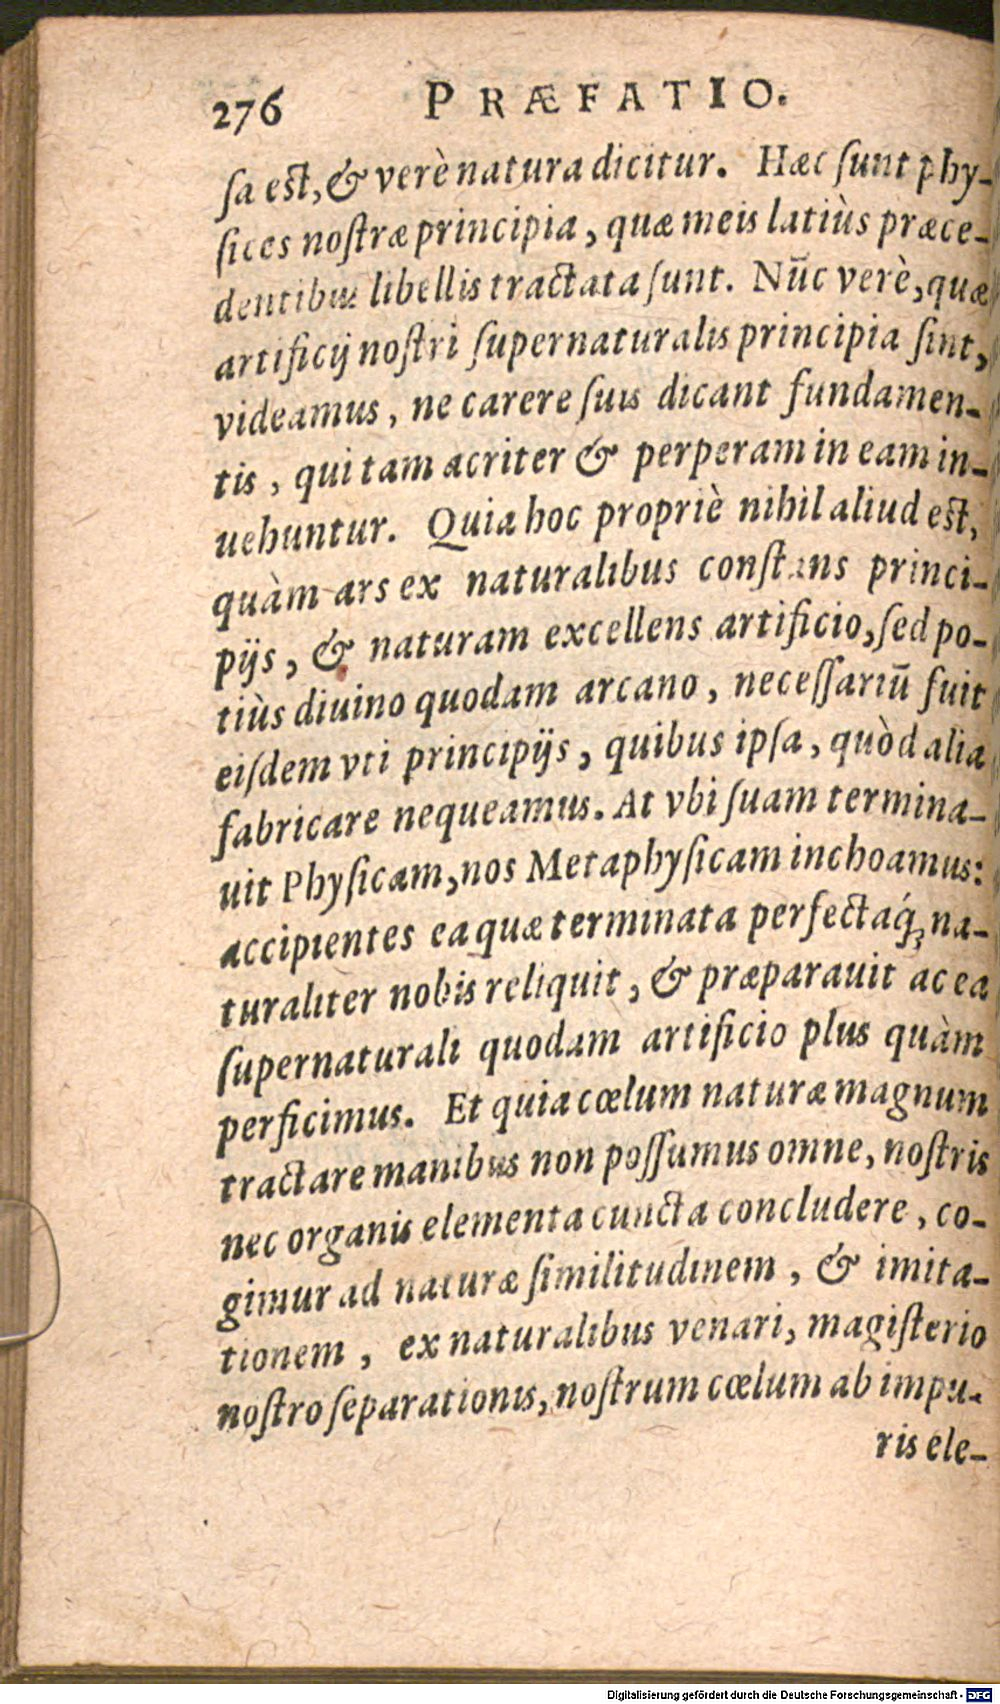 276 PRÆFATIO.
sa est, & verè natura dicitur. Hæc sunt phy-
sices nostræ principia, quæ meis latiùs præce-
dentibus libellis tractata sunt. Nũc verè, quæ
artificij nostri supernaturalis principia sint,
videamus, ne carere suis dicant fundamen-
tis, qui tam acriter & perperam in eam in-
uehuntur. Quia hoc propriè nihil aliud est,
quàm ars ex naturalibus constans princi-
pijs, & naturam excellens artificio, sed po-
tiùs diuino quodam arcano, necessariũ fuit
eisdem vti principijs, quibus ipsa, quòd alia
fabricare nequeamus. At vbi suam termina-
uit Physicam, nos Metaphysicam inchoamus:
accipientes ea quæ terminata perfectaq́; na-
turaliter nobis reliquit, & præparauit ac ea
supernaturali quodam artificio plus quàm
perficimus. Et quia cœlum naturæ magnum
tractare manibus non possumus omne, nostris
nec organis elementa cuncta concludere, co-
gimur ad naturæ similitudinem, & imita-
tionem, ex naturalibus venari, magisterio
nostro separationis, nostrum cœlum ab impu-
ris ele-
Digitalisierung gefördert durch die Deutsche Forschungsgemeinschaft - DFG